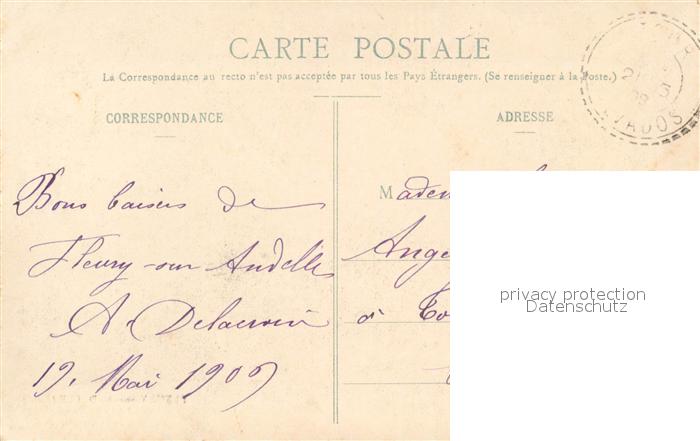 CARTE POSTALE
La Correspondance au recto n'est pas acceptée par tous les Pays Étrangers. (Se renseigner à la Poste.)
CORRESPONDANCE
ADRESSE
Bons baisers de
Fleury-sur Andelle
A. Delacroix
19. Mai 1909
Madem
Ange
à
privacy protection
Datenschutz